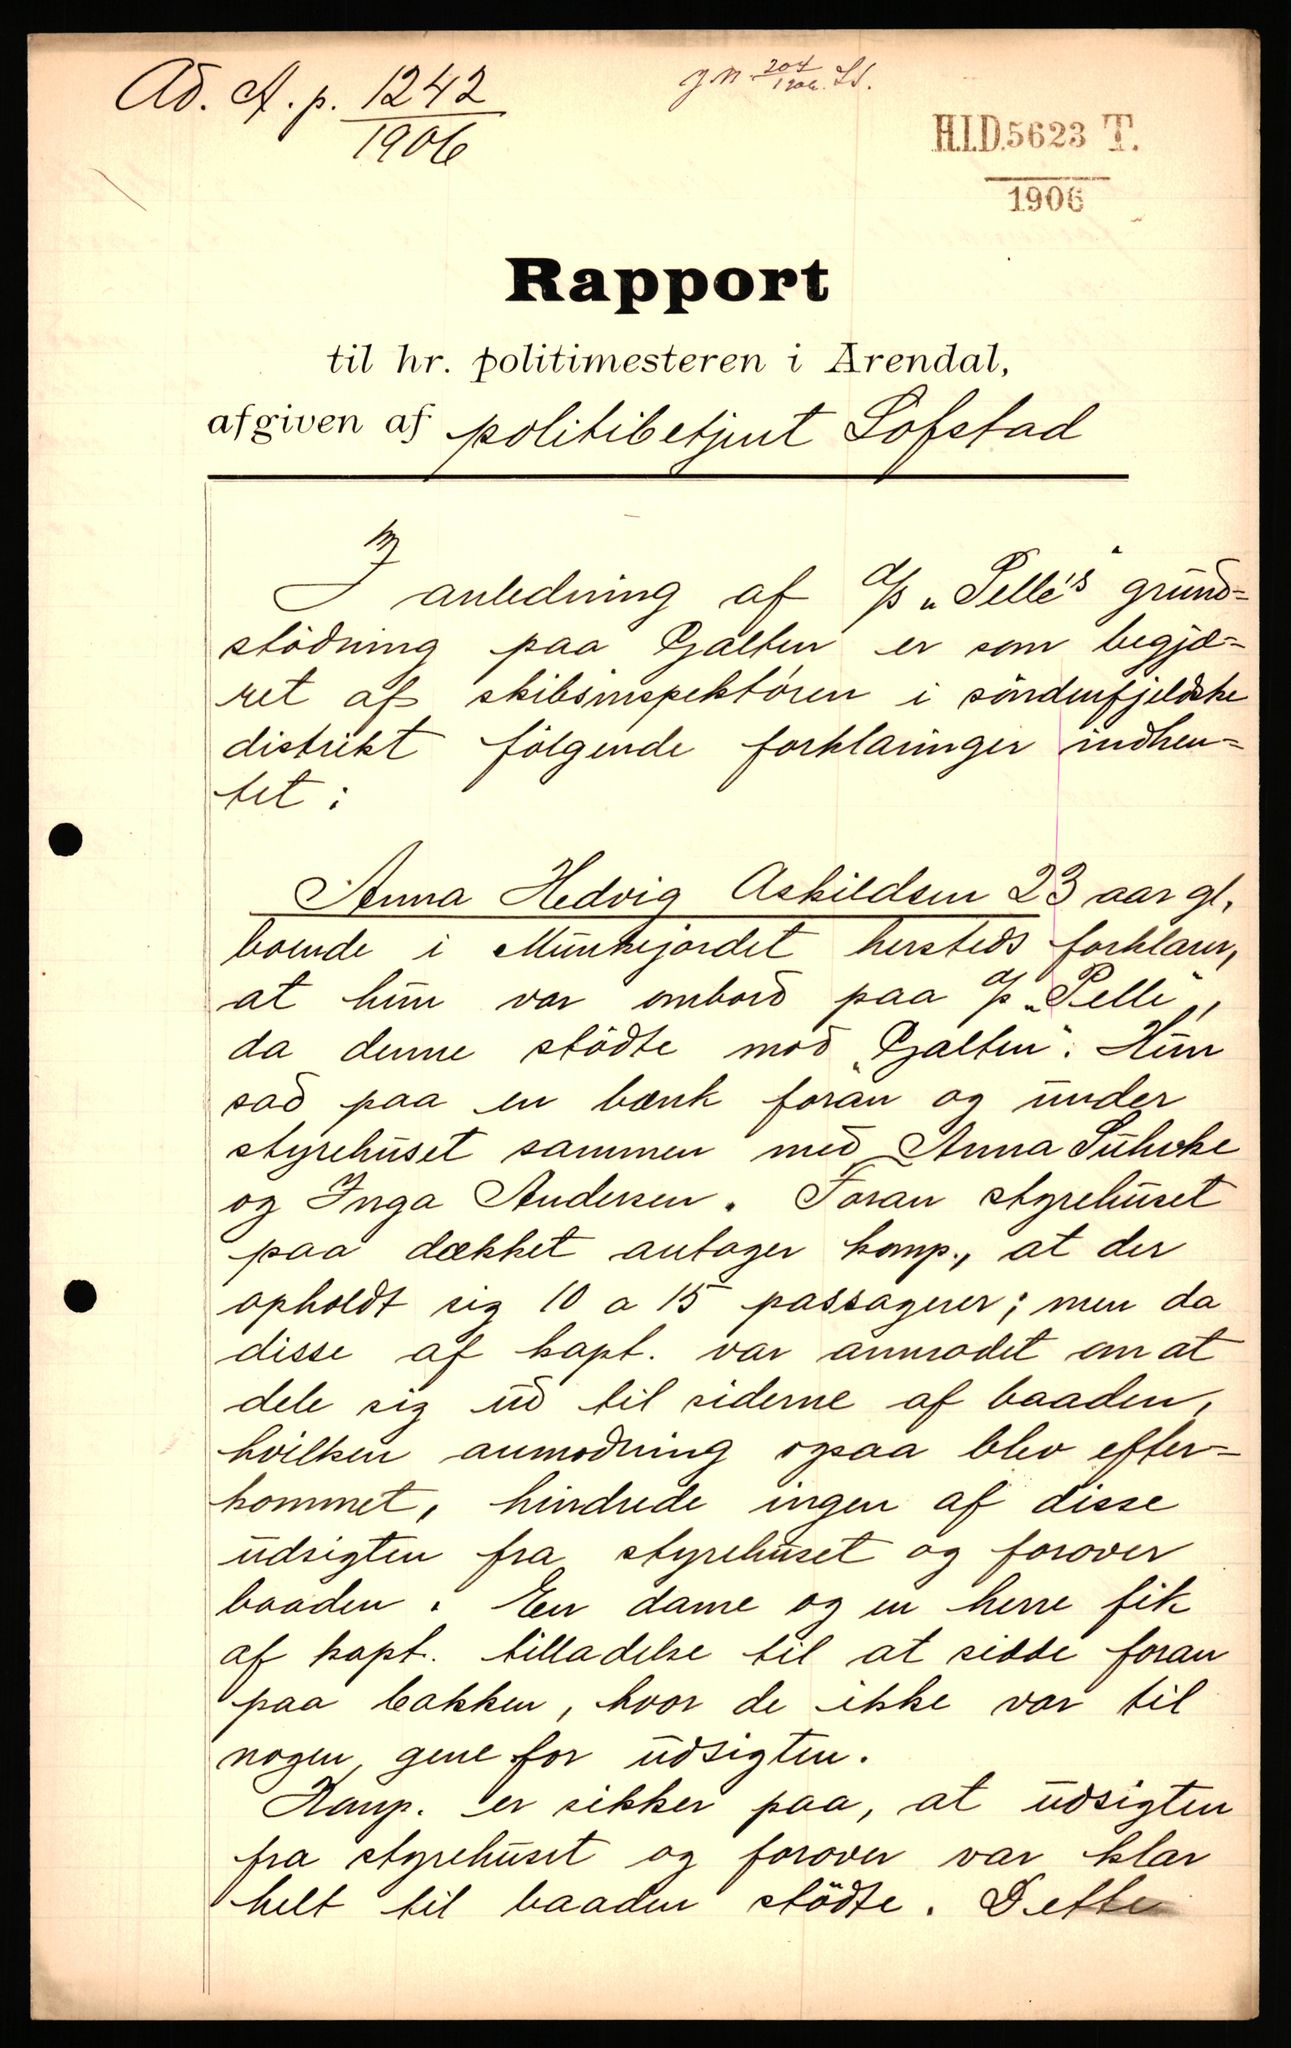 Ad. A. p. 1242
1906
J.N. 204
1906
H.I.D. 5623 T.
1906
Rapport
til hr. politimesteren i Arendal,
afgiven af politibetjent Lofstad
I anledning af d/s „Pelle's" grund=
stödning paa Galten er som begjæ=
ret af skibsinspektören i söndenfjeldske
distrikt fölgende forklaringer indhen=
tet:
Anna Hedvig Askildsen 23 aar gl.
boende i Munkejordet hersteds forklarer,
at hun var ombord paa d/s „Pelle",
da denne stödte mod „Galten". Hun
sad paa en bænk foran og under
styrehuset sammen med Anna Suhrke
og Inga Andersen. Foran styrehuset
paa dækket antager komp., at der
opholdt sig 10 a 15 passagerer; men da
disse af kapt. var anmodet om at
dele sig ud til siderne af baaden,
hvilken anmodning ogsaa blev efter=
kommet, hindrede ingen af disse
udsigten fra styrehuset og forover
baaden. En dame og en herre fik
af kapt. tilladelse til at sidde foran
paa bakken, hvor de ikke var til
nogen gene for udsigten.
Komp. er sikker paa, at udsigten
fra styrehuset og forover var klar
helt til baaden stödte. Dette